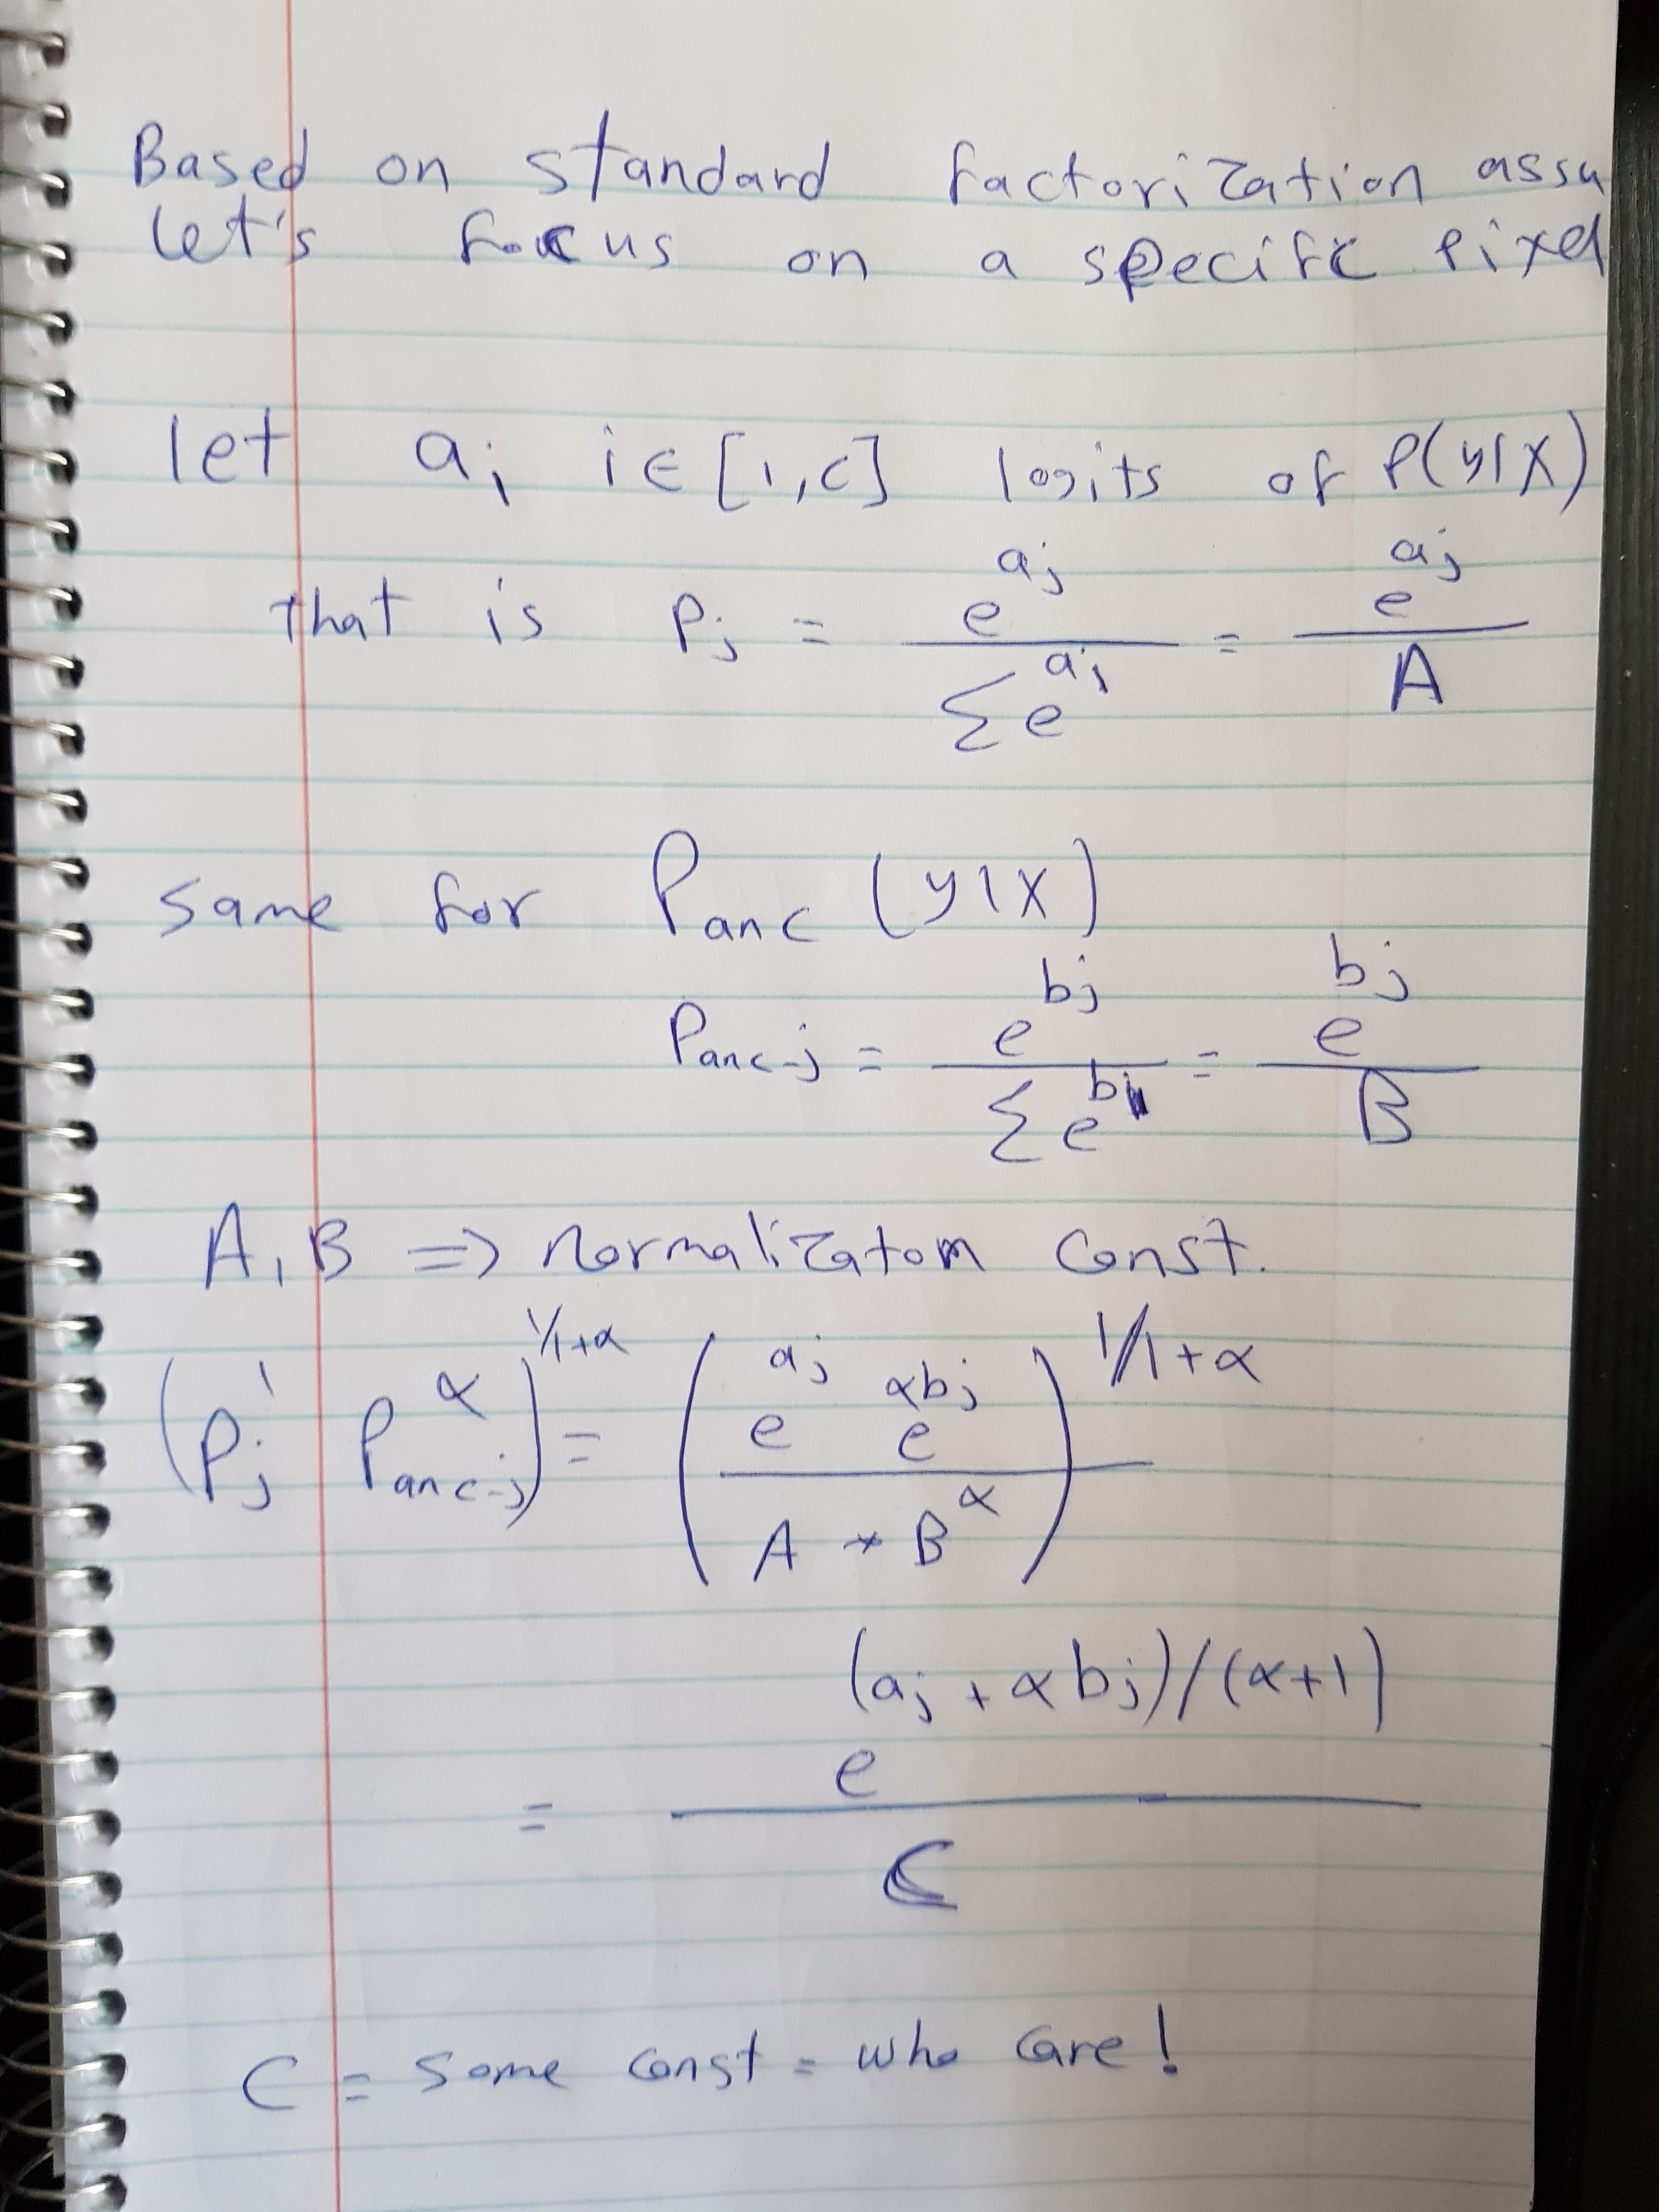 Based on standard factorization assu
let's focus on a specific pixel
let a_i i∈[1,c] logits of P(y|X)
that is P_j = e^{a_j} / Σe^{a_i} = e^{a_j} / A
same for P_anc (y|X)
P_anc-j = e^{b_j} / Σe^{b_i} = e^{b_j} / B
A, B => normalizatom const.
(P_j^1 P_anc-j^α)^{1/1+α} = (e^{a_j} e^{αb_j} / A * B^α)^{1/1+α}
= e^{(a_j + αb_j)/(α+1)} / C
C = some const = who care!